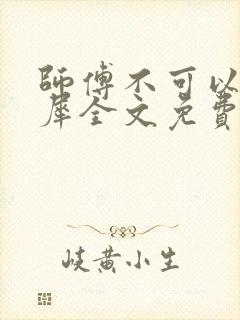 師傅不可以
犀全文免費
岐黄小生